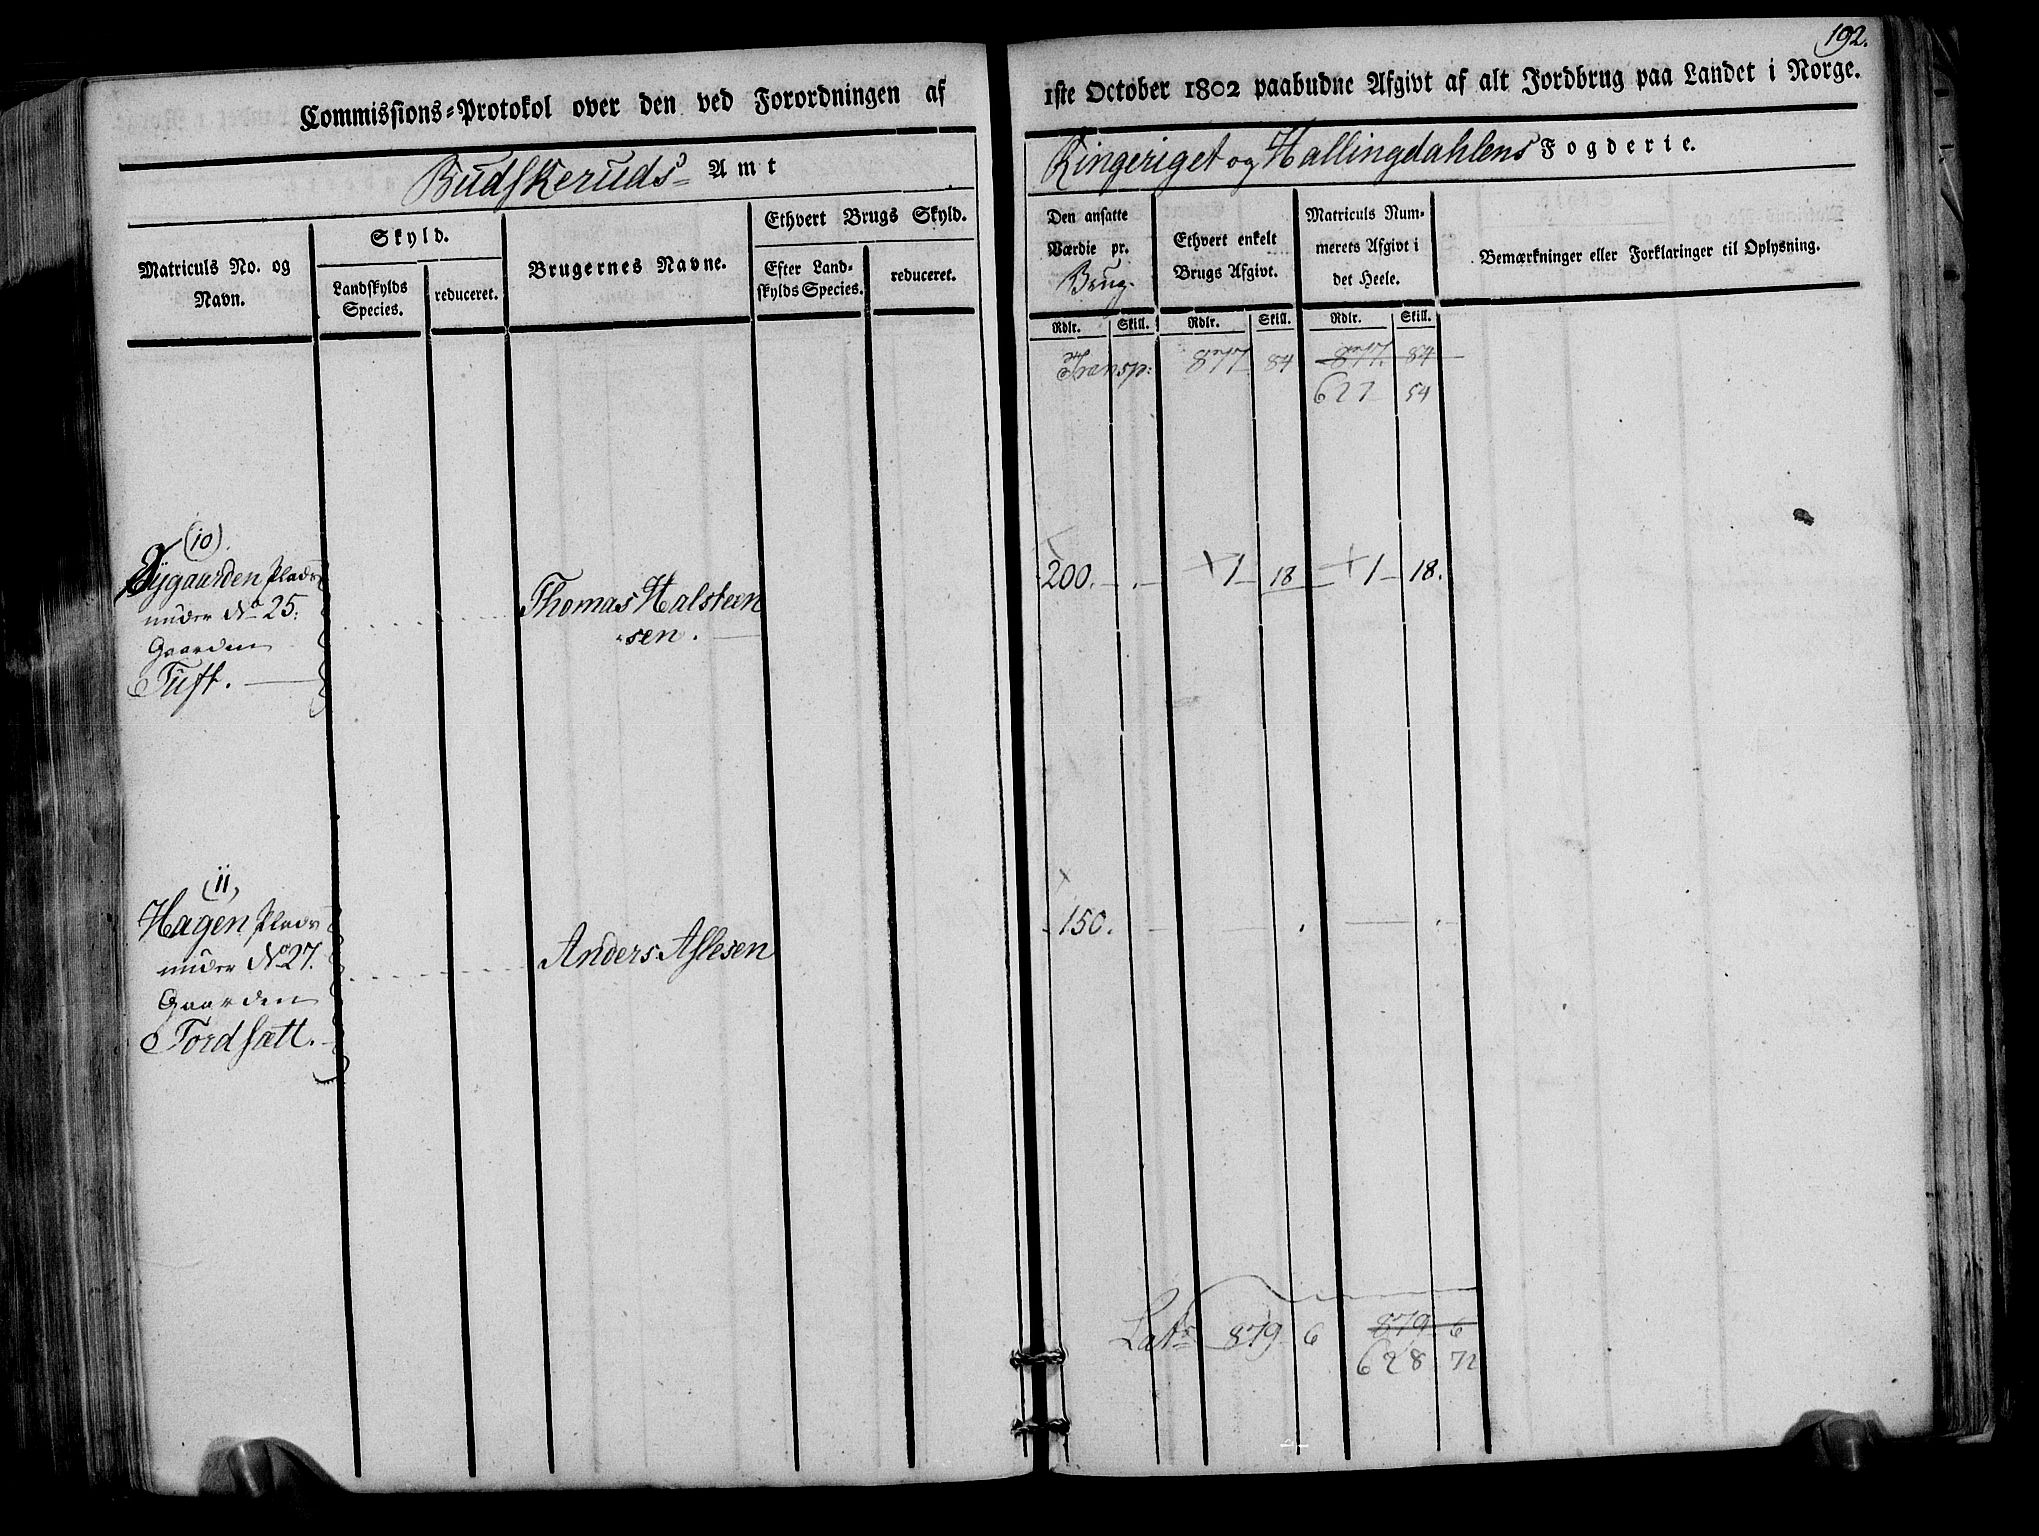 192.
Commissions=Protokol over den ved Forordningen af
1ste October 1802 paabudne Afgivt af alt Jordbrug paa Landet i Norge.
Budskeruds Amt
Ringeriget og Hallingdahlens Fogderie.
Matriculs No. og Navn.
Skyld.
Landskylds Species.
reduceret.
Brugernes Navne.
Ethvert Brugs Skyld.
Efter Land-skylds Species.
reduceret.
Den ansatte Værdie pr. Brug.
Ethvert enkelt Brugs Afgivt.
Matriculs Nummerets Afgivt i det Heele.
Bemærkninger eller Forklaringer til Oplysning.
Rdlr. Skill. Rdlr. Skill. Rdlr. Skill.
Transp: 877 84 877 84
627 54
(10).
Nygaarden Plads
under No 25.
Gaarden
Tuft.
Thomas Halsteen
sen.
200. 1 18 1 18.
(11)
Hagen Plads
under No 27.
Gaarden
Tordsætt.
Anders Aslesen
150.
Lats 879 6 879 6
628 72